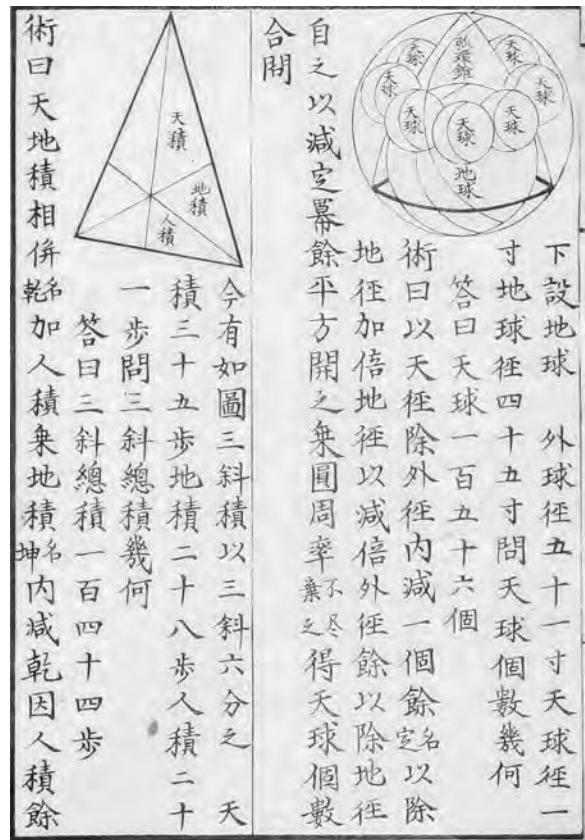 天球
天球
弧環錐
天球
天球
天球
天球
天球
地球
下設地球　外球径五十一寸天球径一
寸地球径四十五寸問天球個數幾何
答曰天球一百五十六個
術曰以天径除外径内減一個餘名定以除
地径加倍地径以減倍外径餘以除地径
自之以減定冪餘平方開之乗圓周率不尽棄之得天球個數
合問
天積
地積
人積
今有如圖三斜積以三斜六分之　天
積三十五歩地積二十八歩人積二十
一歩問三斜總積幾何
答曰三斜總積一百四十四歩
術曰天地積相併名乾加人積乗地積名坤内減乾因人積餘